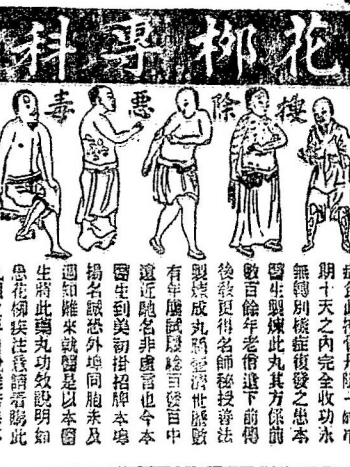 花柳專科
搜除惡毒
期十天之內完全收功永
無轉別樣症復發之患本
醫生製煉此丸其方係前
數百餘年老僧遺下前傳
後敎更得名師秘授善法
製煉成丸濟世歷數
有年屢試屢驗百發百中
遠近馳名非虛言也今本
醫生到美初掛招牌本埠
揚名誠恐外埠同胞未及
週知難來就醫是以本醫
生將此藥丸功效說明如
患花柳疾注意請看賜此